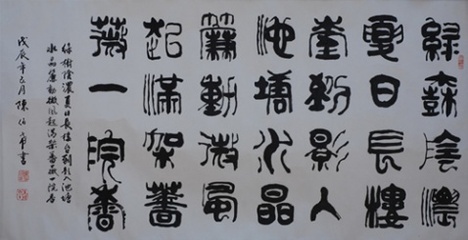 綠樹陰濃
夏日長樓
臺倒影入
池塘水晶
簾動微風
起滿架薔
薇一院香
綠樹陰濃夏日長樓台倒影入池塘
水晶簾動微風起滿架薔薇一院香
戊辰年五月 陳伯書